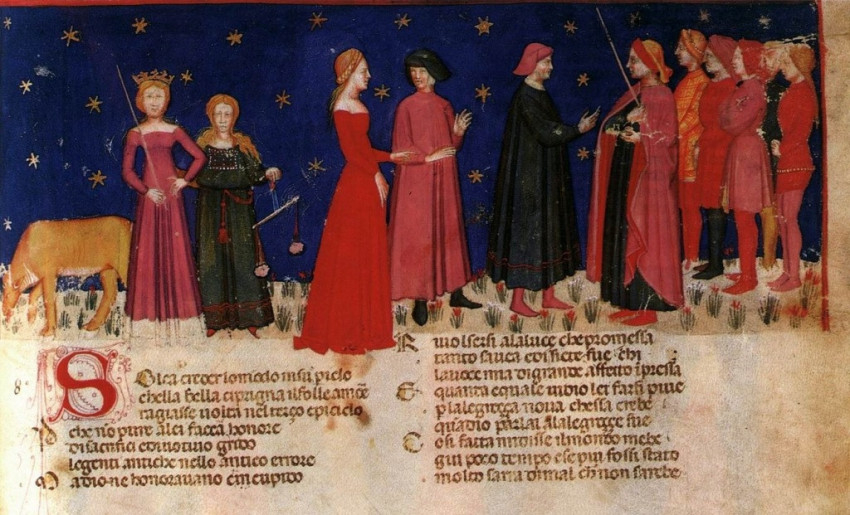 8
Solea creder lomōdo ī su piclo
chella bella ciprigna ilfolle amoē
ragiasse uolta nel terço epiciclo
che nō pure alei faccā honore
disacrifici ediuotiuo grido
legenti antiche nello antico errore
Ma dione honorauano cupido
Riuolsersi alaluce che promessa
tanto sauea fue chi
lauoce mia digrande affetto ipressa
E quanta equale uidio lei farsi piue
p lalegreça noua chessa crebe
quādio parlai alalegreçe sue
Cosi fatta midisse ilmondo mebe
giu poco tempo ese piu fossi stato
molto saria dimal ch non sarebe